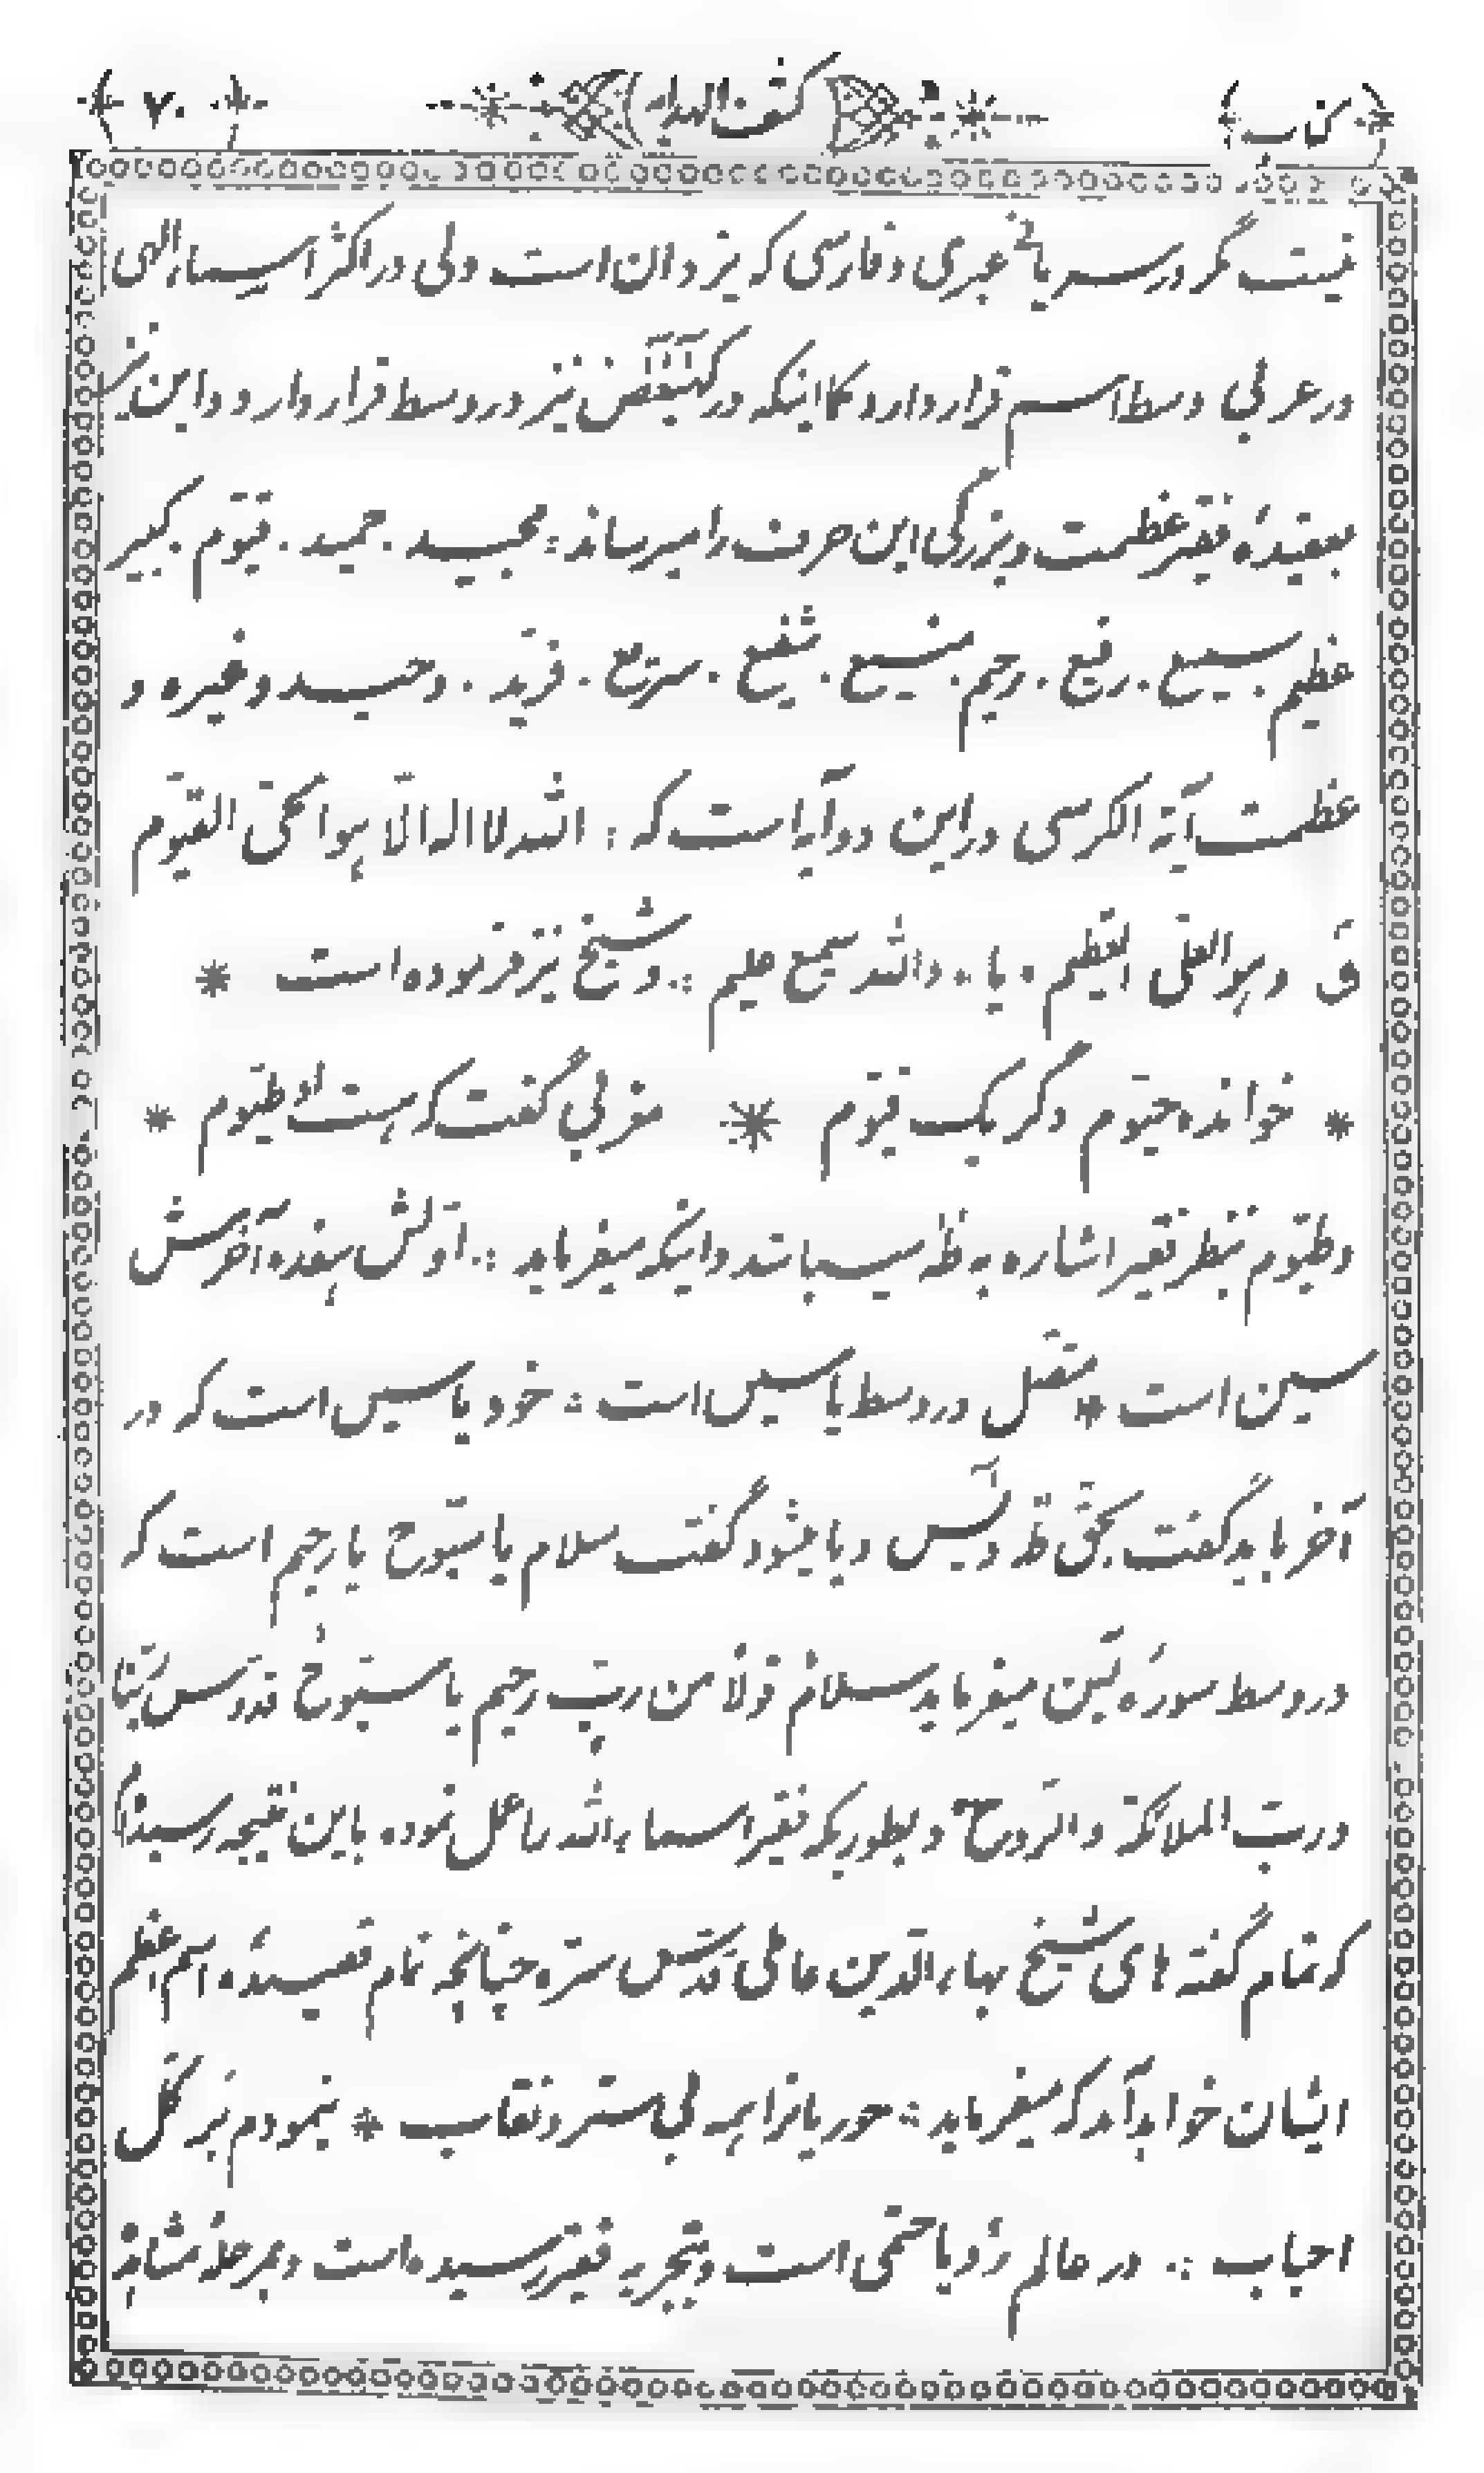 کتاب کشف الهدایه ۷۰
نیست مگر در سریانی عبری و فارسی که یزدان است ولی در اکثر اسماء الهی
در عربی وسط اسم قرار دارد کما اینکه در کهیعص نیز در وسط قرار دارد و این نیز
بعقیدهٔ فقیر عظمت و بزرگی این حرف را میرساند : مجید . حمید . قیّوم . کبیر
عظیم . سمیع . رفیع . رحیم . منیع . شفیع . سریع . فرید . وحید و غیره و
عظمت آیة الکرسی در این دو آیه است که : الله لا اله الّا هو الحیّ القیّوم
ق و هو العلیّ العظیم . یا . و الله سمیع علیم :. و شیخ نیز فرموده است *
* خوانده حیّوم دگر یک قیّوم * مغربی گفت که هست او طیّوم *
و طیّوم بنظر فقیر اشاره به طه میباشد و اینکه میفرماید :. اوّلش هفده آخرش
سین است * متّصل در وسط یاسین است : خود یاسین است که در
آخر باید گفت بحقّ طه و یس و یا میشود گفت سلام یا سبّوح یا رحیم است که
در وسط سورهٔ یس میفرماید سلامٌ قولاً من ربّ رحیم یا سبّوحٌ قدّوس ربّنا
و ربّ الملائکة و الرّوح و بطوریکه فقیر اسماء الله را عمل نموده باین نتیجه رسیده‌ام
که تمام گفته های شیخ بهاء الدّین عاملی قدّس سرّه چنانچه تمام قصیدهٔ اسم اعظم
ایشان خواهد آمد که میفرماید : حور یا نرا همه بی ستر و نقاب * بنمودم بر کلّ
احباب :. در عالم رؤیا حتمی است و بتجربه فقیر رسیده است و بمرحلهٔ